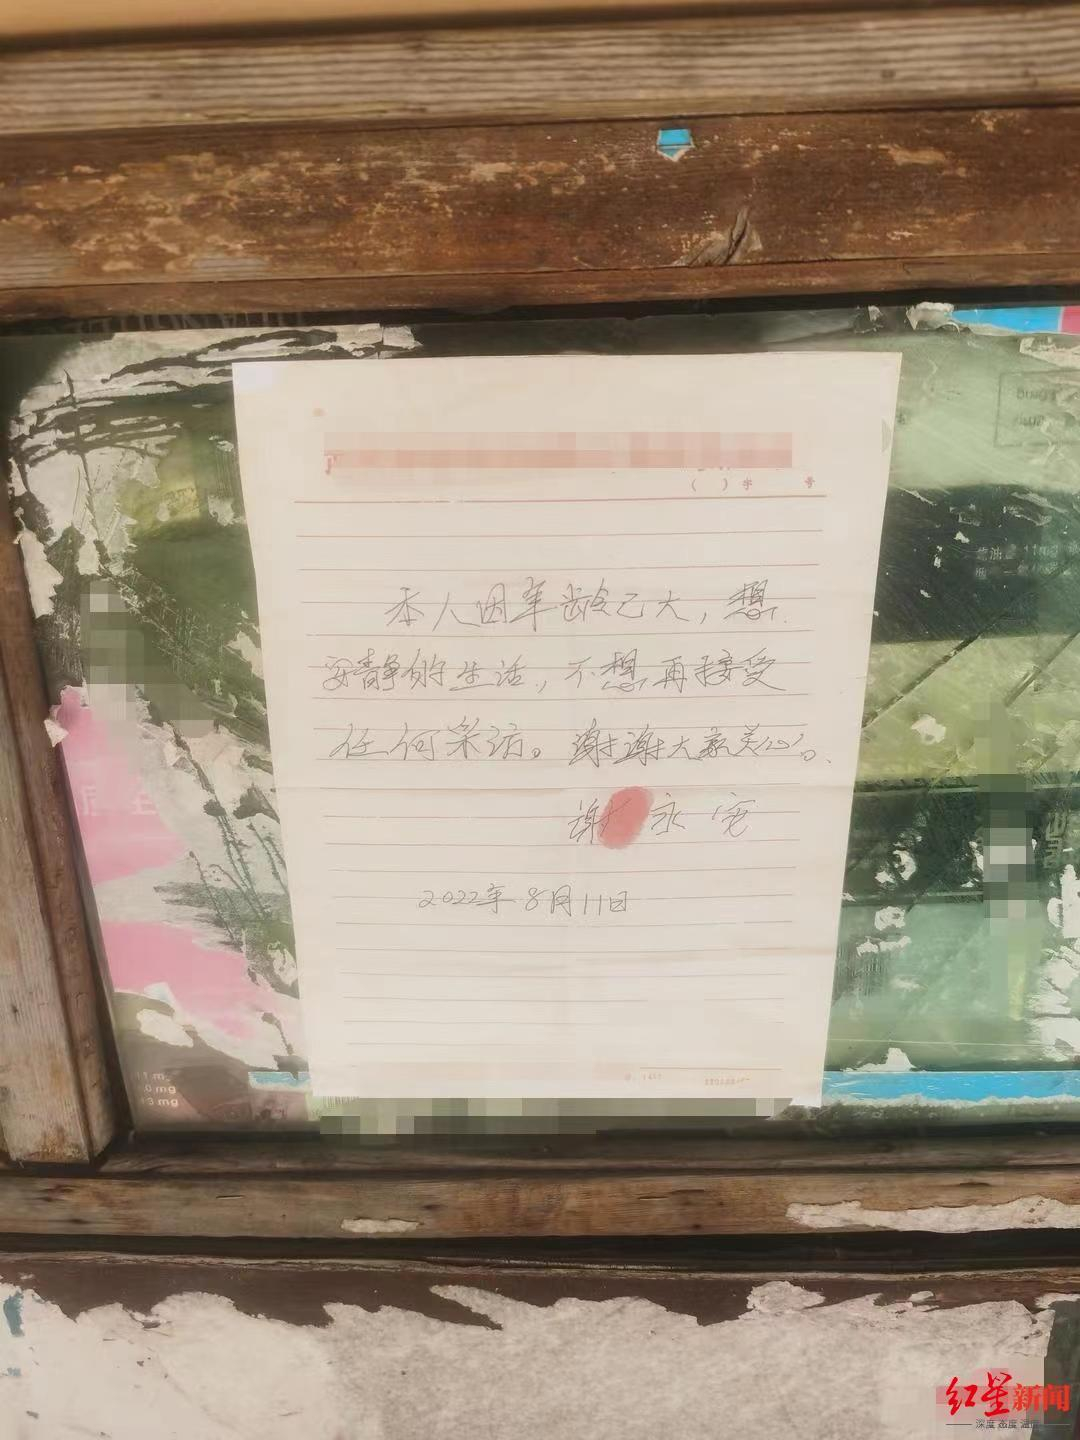 ( )字 号
本人因年龄已大，想
安静的生活，不想再接受
任何采访。谢谢大家关心。
谢永宽
2022年8月11日
11mg
红星新闻
深度 态度 温度